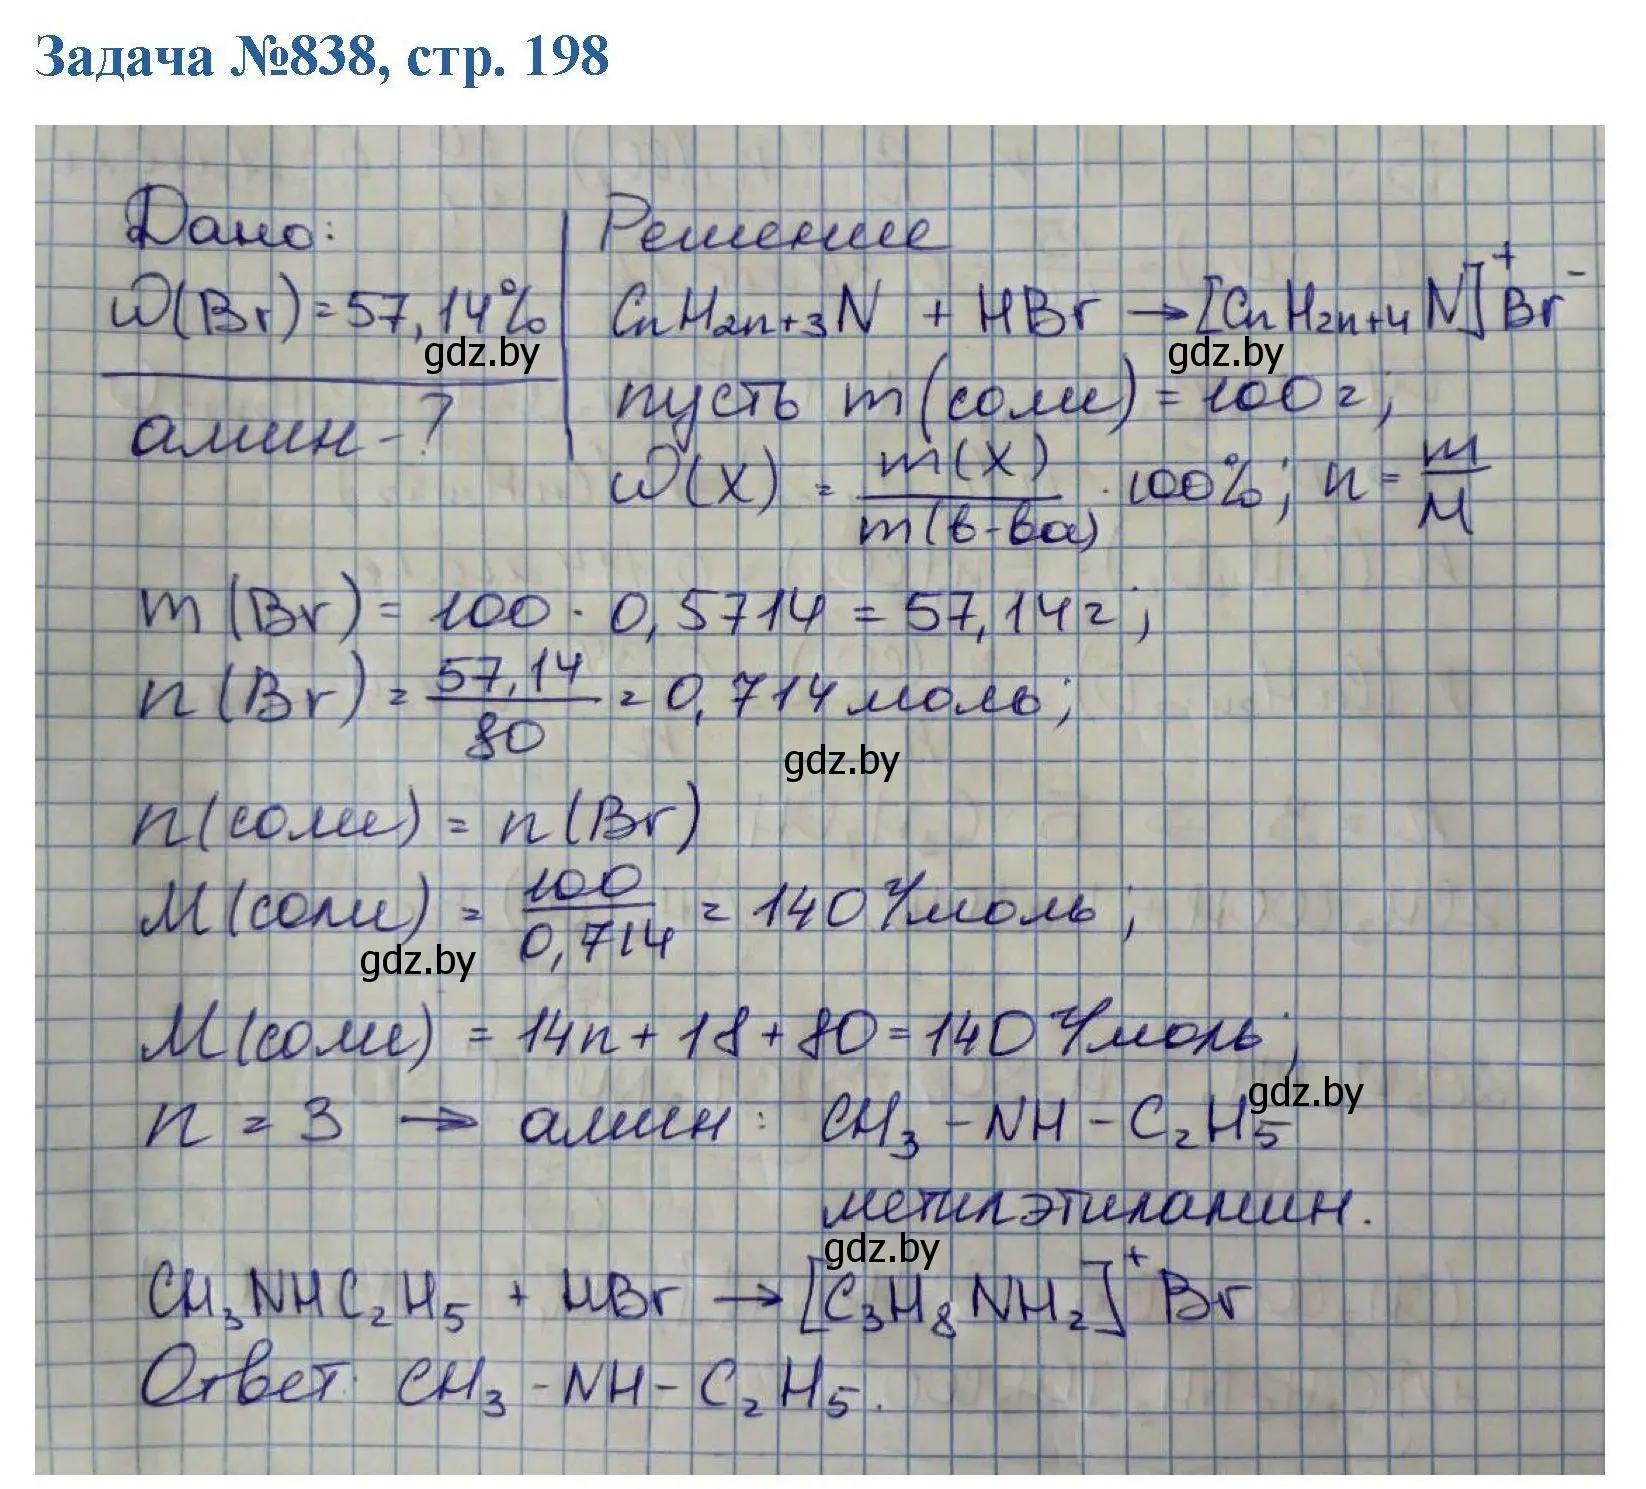 Задача №838, стр. 198
Дано:
Решение
ω(Br) = 57,14%
CnH2n+3N + HBr → [CnH2n+4N]⁺Br⁻
gdz.by
gdz.by
амин - ?
пусть m(соли) = 100г;
ω(X) = m(X)/m(в-ва) · 100%; n = m/M
m(Br) = 100 · 0,5714 = 57,14г;
n(Br) = 57,14/80 = 0,714 моль;
gdz.by
n(соли) = n(Br)
M(соли) = 100/0,714 = 140 г/моль;
gdz.by
M(соли) = 14n + 18 + 80 = 140 г/моль;
gdz.by
n = 3 → амин: CH₃ - NH - C₂H₅
метилэтиламин.
gdz.by
CH₃NHC₂H₅ + HBr → [C₃H₈NH₂]⁺Br
Ответ: CH₃ - NH - C₂H₅.